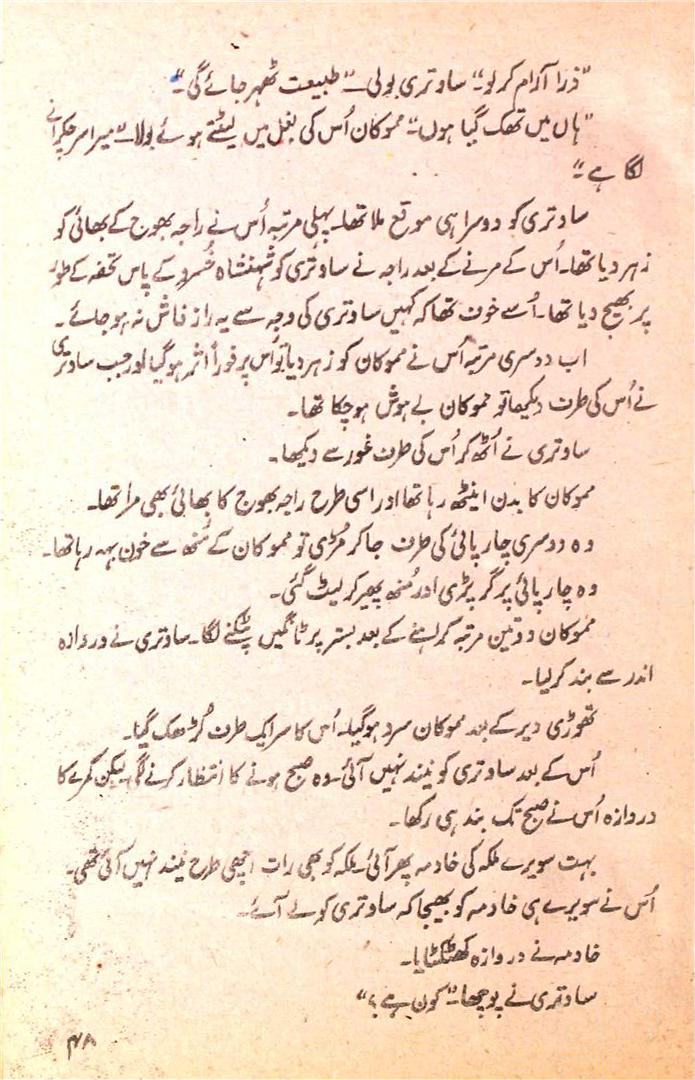 ”ذرا آرام کر لو۔“ ساوتری بولی۔ ”طبیعت ٹھہر جائے گی۔“
”ہاں میں تھک گیا ہوں“۔ مموکان اُس کی بغل میں لیٹتے ہوئے بولا۔ ”میرا سر چکرانے
لگا ہے۔“
ساوتری کو دوسرا ہی موقع ملا تھا۔ پہلی مرتبہ اُس نے راجہ بھوج کے بھائی کو
زہر دیا تھا۔ اُس کے مرنے کے بعد راجہ نے ساوتری کو شہنشاہ خسرو کے پاس تحفہ کے طور
پر بھیج دیا تھا۔ اُسے خوف تھا کہ کہیں ساوتری کی وجہ سے یہ راز فاش نہ ہو جائے۔
اب دوسری مرتبہ اُس نے مموکان کو زہر دیا تو اُس پر فوراً اثر ہو گیا اور جب ساوتری
نے اُس کی طرف دیکھا تو مموکان بے ہوش ہو چکا تھا۔
ساوتری نے اُٹھ کر اُس کی طرف غور سے دیکھا۔
مموکان کا بدن اینٹھ رہا تھا اور اسی طرح راجہ بھوج کا بھائی بھی مرا تھا۔
وہ دوسری چارپائی کی طرف جا کر مُڑی تو مموکان کے مُنھ سے خون بہہ رہا تھا۔
وہ چارپائی پر گر پڑی اور مُنھ پھیر کر لیٹ گئی۔
مموکان دو تین مرتبہ کراہنے کے بعد بستر پر ٹانگیں پٹکنے لگا۔ ساوتری نے دروازہ
اندر سے بند کر لیا۔
تھوڑی دیر کے بعد مموکان سرد ہو گیا۔ اُس کا سر ایک طرف لُڑھک گیا۔
اُس کے بعد ساوتری کو نیند نہیں آئی۔ وہ صبح ہونے کا انتظار کرنے لگی لیکن کمرے کا
دروازہ اُس نے صبح تک بند ہی رکھا۔
بہت سویرے ملکہ کی خادمہ پھر آئی۔ ملکہ کو بھی رات اچھی طرح نیند نہیں آئی تھی۔
اُس نے سویرے ہی خادمہ کو بھیجا کہ ساوتری کو لے آئے۔
خادمہ نے دروازہ کھٹکھٹایا۔
ساوتری نے پوچھا۔ ”کون ہے؟“
۴۸